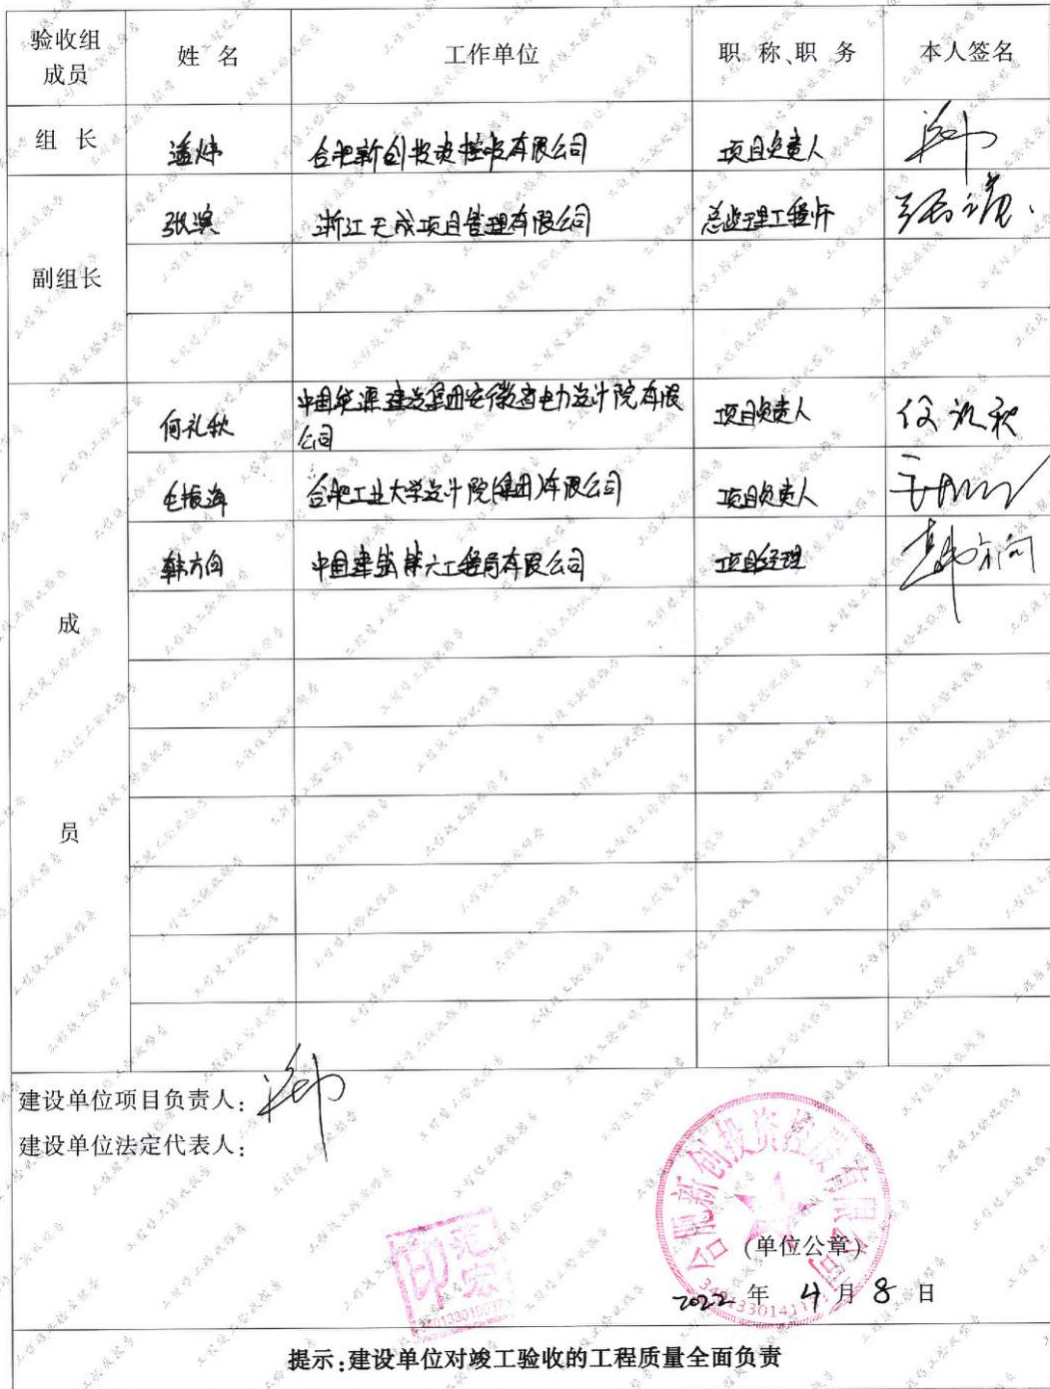 验收组成员 姓 名 工作单位 职 称、职 务 本人签名
组 长 合肥新创投资控股有限公司 项目负责人
副组长 张滨 浙江天成项目管理有限公司 总监理工程师
何礼秋 中国能源建设集团安徽省电力设计院有限
公司 项目负责人 何礼秋
毛振海 合肥工业大学设计院(集团)有限公司 项目负责人
韩方向 中国建筑第六工程局有限公司 项目经理 韩方向
成
员
建设单位项目负责人:
建设单位法定代表人:
合肥新创投资控股有限公司
范宏
印
(单位公章)
2022 年 4 月 8 日
提示:建设单位对竣工验收的工程质量全面负责
工程竣工验收报告